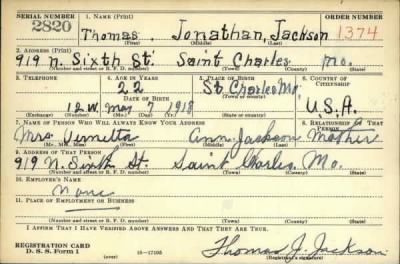 SERIAL NUMBER 1. NAME (Print) ORDER NUMBER
2820 Thomas Jonathan Jackson 1374
(First) (Middle) (Last)
2. ADDRESS (Print)
919 N. Sixth St. Saint Charles Mo.
(Number and street or R. F. D. number) (Town) (County) (State)
3. TELEPHONE 4. AGE IN YEARS 5. PLACE OF BIRTH 6. COUNTRY OF CITIZENSHIP
22 St Charles Mo
DATE OF BIRTH
12 W May 7 1918 U.S.A.
(Exchange) (Number) (Mo.) (Day) (Yr.) (State or country)
7. NAME OF PERSON WHO WILL ALWAYS KNOW YOUR ADDRESS 8. RELATIONSHIP OF THAT PERSON
Mrs. Ann Jackson Mother
(Mr., Mrs., Miss) (First) (Middle) (Last)
9. ADDRESS OF THAT PERSON
919 N. Sixth St. Saint Charles, Mo.
(Number and street or R. F. D. number) (Town) (County) (State)
10. EMPLOYER'S NAME
None
11. PLACE OF EMPLOYMENT OR BUSINESS
(Number and street or R. F. D. number) (Town) (County) (State)
I AFFIRM THAT I HAVE VERIFIED ABOVE ANSWERS AND THAT THEY ARE TRUE.
REGISTRATION CARD
D. S. S. Form 1 (over) 16—17105 Thomas J. Jackson
(Registrant's signature)